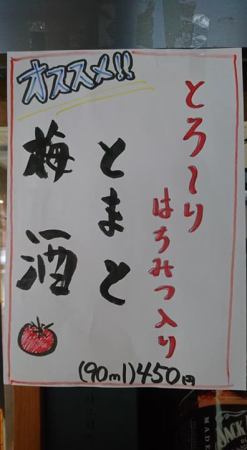 オススメ!!
とろ〜り
はちみつ入り
とまと
梅酒
(90ml)450円
MADE
JACK